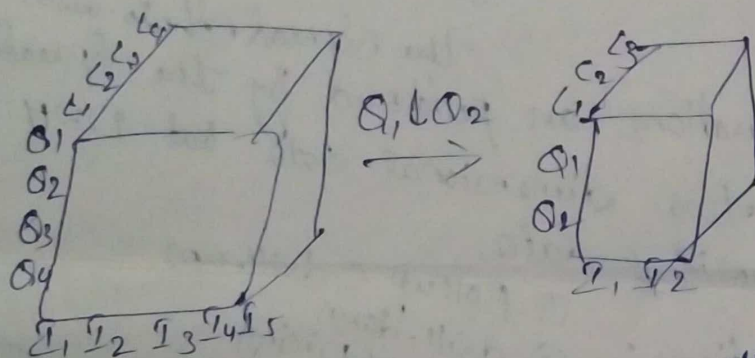 L4
L3
L2
L1
Q1
Q2
Q3
Q4
I1 I2 I3 I4 I5
Q1 & Q2
L3
L2
L1
Q1
Q2
I1 I2